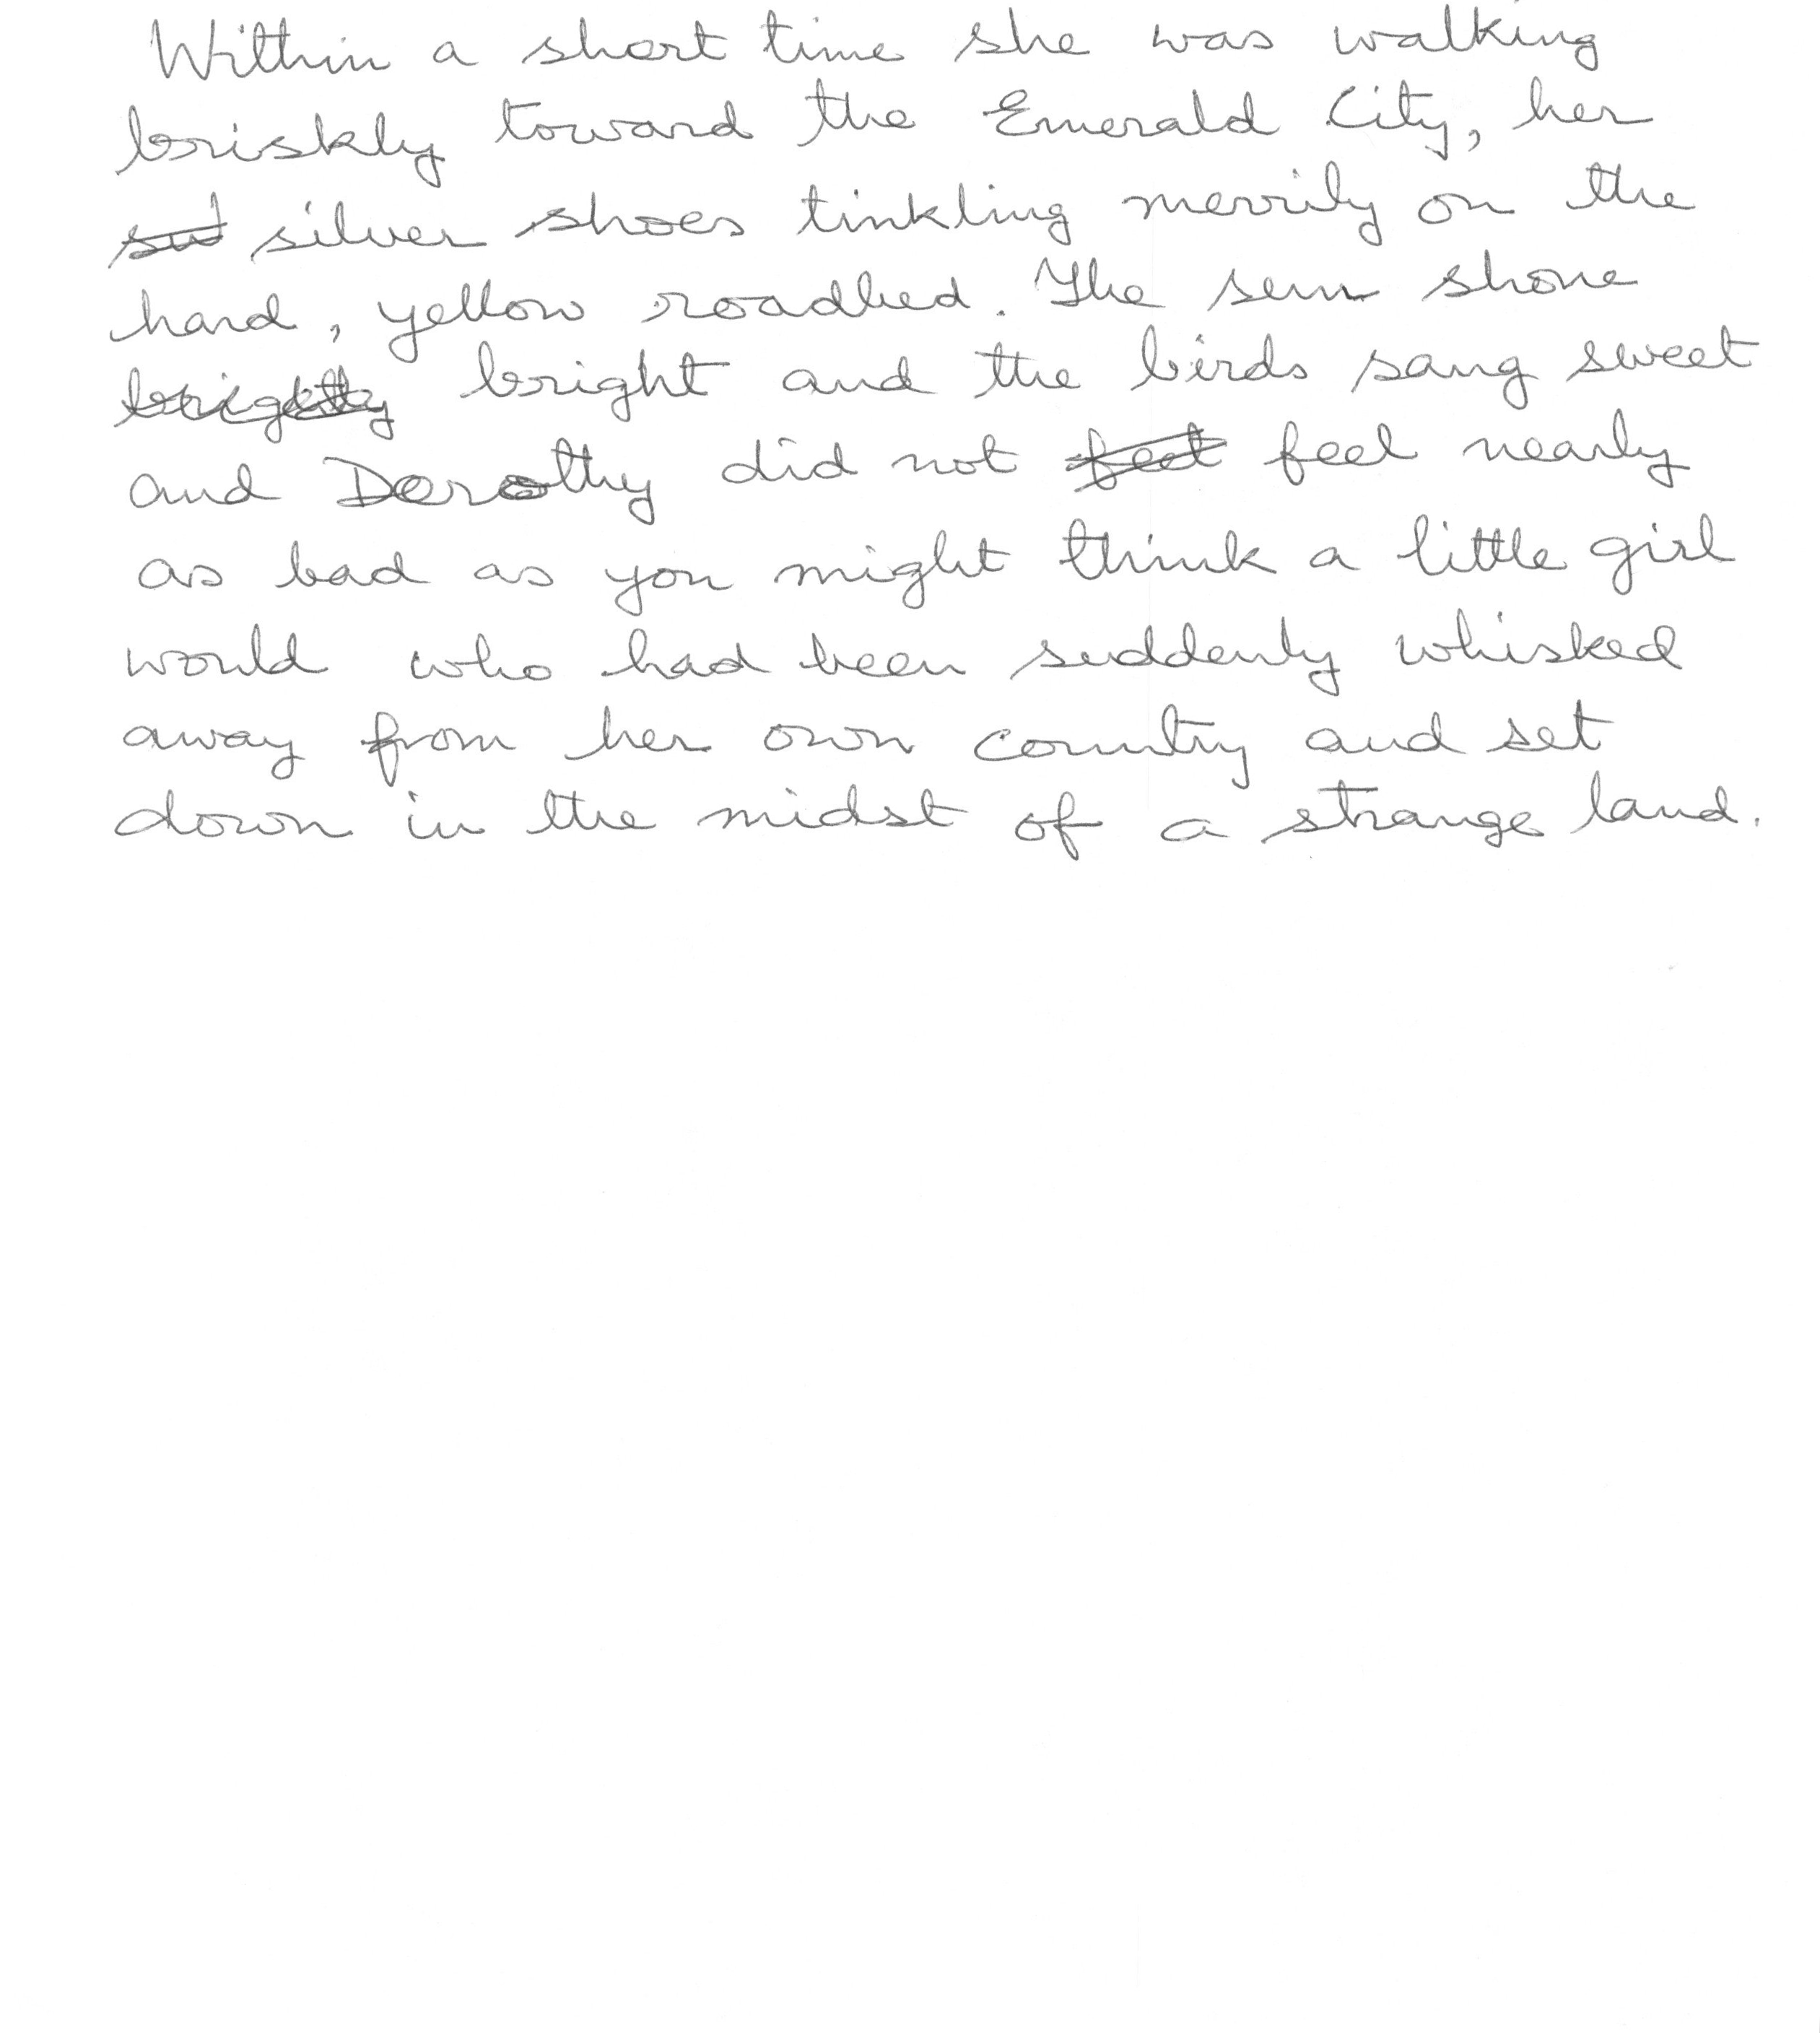 Within a short time she was walking
briskly toward the Emerald City, her
silver shoes tinkling merrily on the
hard, yellow roadbed. The sun shone
brightly bright and the birds sang sweet
and Dorothy did not feet feel nearly
as bad as you might think a little girl
would who had been suddenly whisked
away from her own country and set
down in the midst of a strange land.